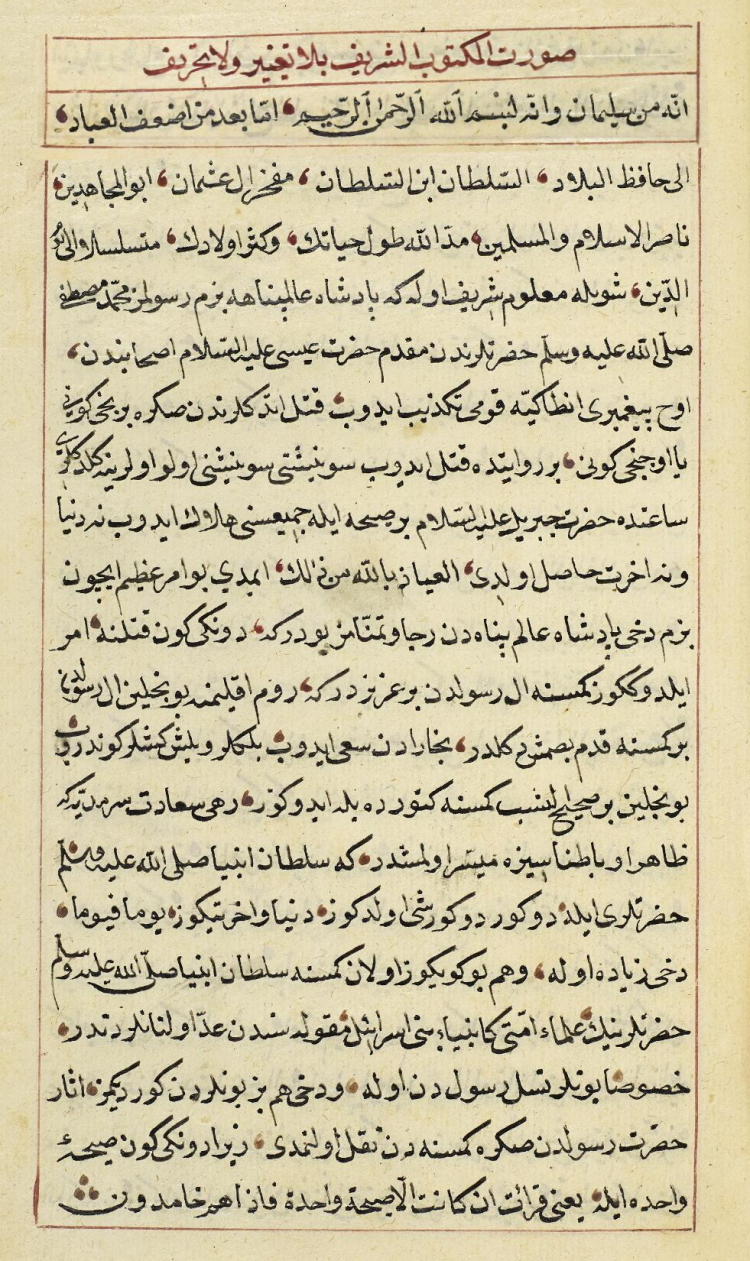 صورت المكتوب الشريف بلا تغيير ولا تحريف
انّه من سليمان وانّه لبسم الله الرّحمن الرّحيم امّا بعد من اضعف العباد
الى حافظ البلاد السّلطان ابن السّلطان مفخر ال عثمان ابو المجاهدين
ناصر الاسلام والمسلمين مدّ الله طول حياتك وكثر اولادك متسلسلا والى يوم
الدّين شويله معلوم شريف اوله كه پادشاه عالمپناهه بزم رسولمز محمّد مصطفى
صلّى الله عليه وسلّم حضرتلرندن مقدم حضرت عيسى عليه السّلام اصحابندن
اوح پيغمبرى انطاكيّه قومى تكذيب ايدوب قتل اتدكلرندن صكره برنجى كونى
يا اوچنجى كونى بر روايتده قتل ايدوب سوينشتى سوينشنى اولو اولرينه كلدكلرى
ساعتده حضرت جبريل عليه السّلام بر صيحه ايله جميعسنى هلاك ايدوب نه دنيا
ونه اخرت حاصل اولدى العياذ بالله من ذالك ايمدي بو امر عظيم ايچون
بزم دخى پادشاه عالم پناه دن رجا وتمنّامز بودركه دونكى كون قتلنه امر
ايلدوككوز كمسنه ال رسولدن بر عزيزدركه روم اقليمنه بونجلين ال رسولدن
بر كمسنه قدم بصمش دكلدر بخارادن سعى ايدوب بلكلر ويلش كمشلر كوندروب
بونجلين بر صحيح النسب كمسنه كتورده بله ايدوكز رهى سعادت سرمديّه كه
ظاهرا وباطنا سيزه ميسّر اولمشدر كه سلطان انبيا صلى الله عليه وسلّم
حضرتلرى ايله دوكور دوكورشى اولدكوز دنيا واخرتيكوز يوما فيوما
دخى زياده اوله وهم بو كويكوز اولان كمسنه سلطان انبيا صلّى الله عليه وسلّم
حضرتلرينك علماء امّتى كانبياء بنى اسرائيل مقوله سندن عدّ اولنانلردندر
خصوصا بونلر نسل رسول دن اوله ودخى هم بز بونلردن كورديكمز اثار
حضرت رسولدن صكره كمسنه دن نقل اولنمدى زيرا دونكى كون صيحهٔ
واحده ايله يعنى قرائت ان كانت الّا صيحة واحدة فاذا هم خامدون